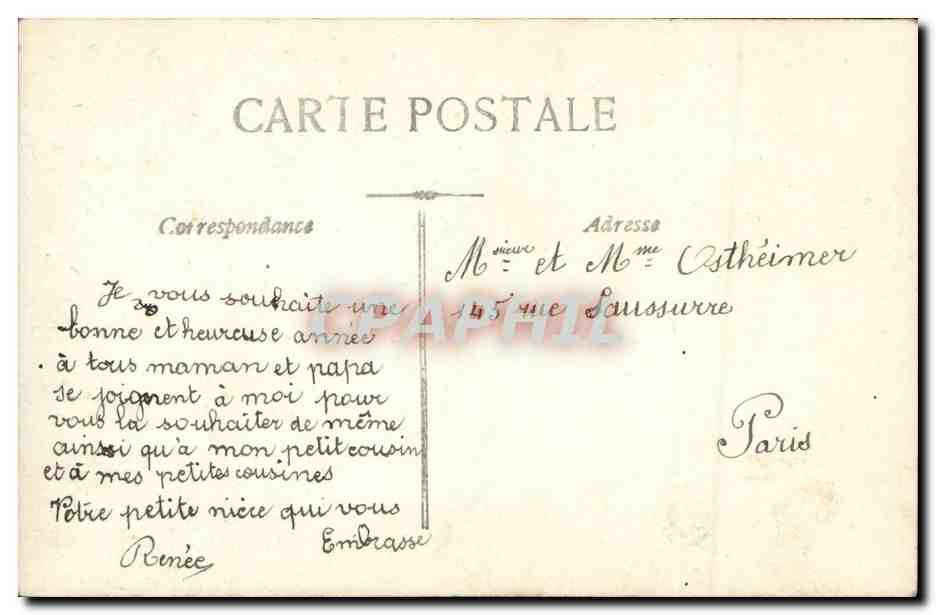 CARTE POSTALE
Correspondance
Je vous souhaite une
bonne et heureuse année
à tous maman et papa
se joignent à moi pour
vous la souhaiter de même
ainsi qu'à mon petit cousin
et à mes petites cousines
Votre petite nièce qui vous
Embrasse
Renée
Adresse
Msieur et Mme Osthéimer
145 rue Saussurre
Paris
CPAPHIL